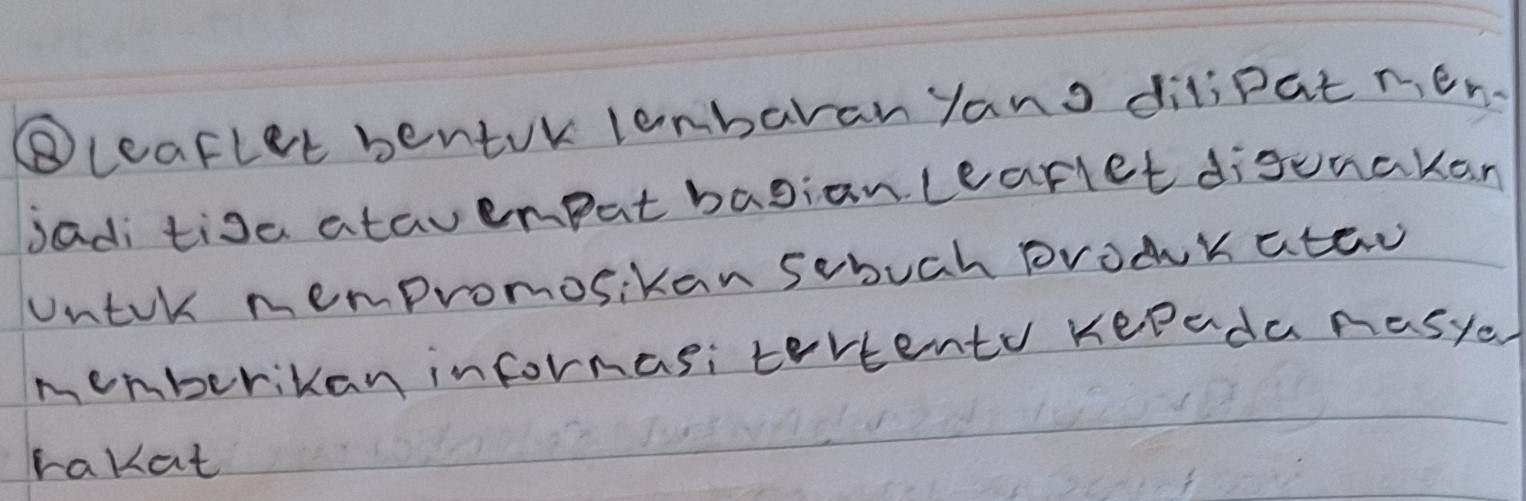 ⑧ Leaflet bentuk lembaran yang dilipat men-
jadi tiga atau empat bagian. Leaflet digunakan
untuk mempromosikan sebuah produk atau
memberikan informasi tertentu kepada masya-
rakat